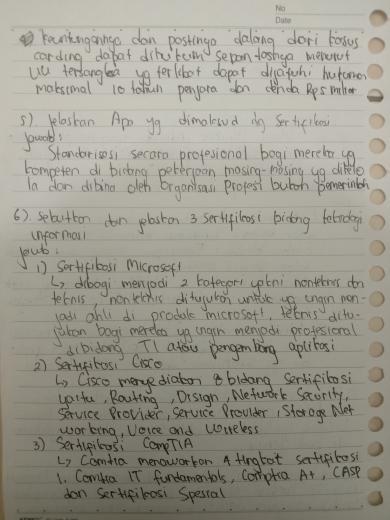 No
Date
keuntungannya dan pastinya dalang dari kasus
carding dapat dihukum sepantasnya menurut
UU tersangka yg terlibat dapat dijatuhi hukuman
maksimal 10 tahun penjara dan denda Rp 5 miliar
5) Jelaskan Apa yg dimaksud dg Sertifikasi
Jawab:
Standarisasi secara profesional bagi mereka yg
kompeten di bidang pekerjaan masing-masing yg dikelo
la dan dibina oleh organisasi Profesi bukan pemerintah
6) Sebutkan dan jelaskan 3 Sertifikasi bidang teknologi
informasi
Jawab:
1) Sertifikasi Microsoft
↳ dibagi menjadi 2 kategori yakni nonteknis dan
teknis, nonteknis ditujukan untuk yg ingin men-
jadi ahli di produk microsoft, teknis ditu-
jukan bagi mereka yg ingin menjadi profesional
dibidang TI atau pengembang aplikasi
2) Sertifikasi Cisco
↳ Cisco menyediakan 8 bidang Sertifikasi
yaitu, Routing, Design, Network Security,
Service Provider, Service Provider, Storage Net
working, Voice and Wireless
3) Sertifikasi CompTIA
↳ Comtia menawarkan 4 tingkat sertifikasi
1. Comtia IT fundamentals, Comptia A+, CASP
dan Sertifikasi Spesial